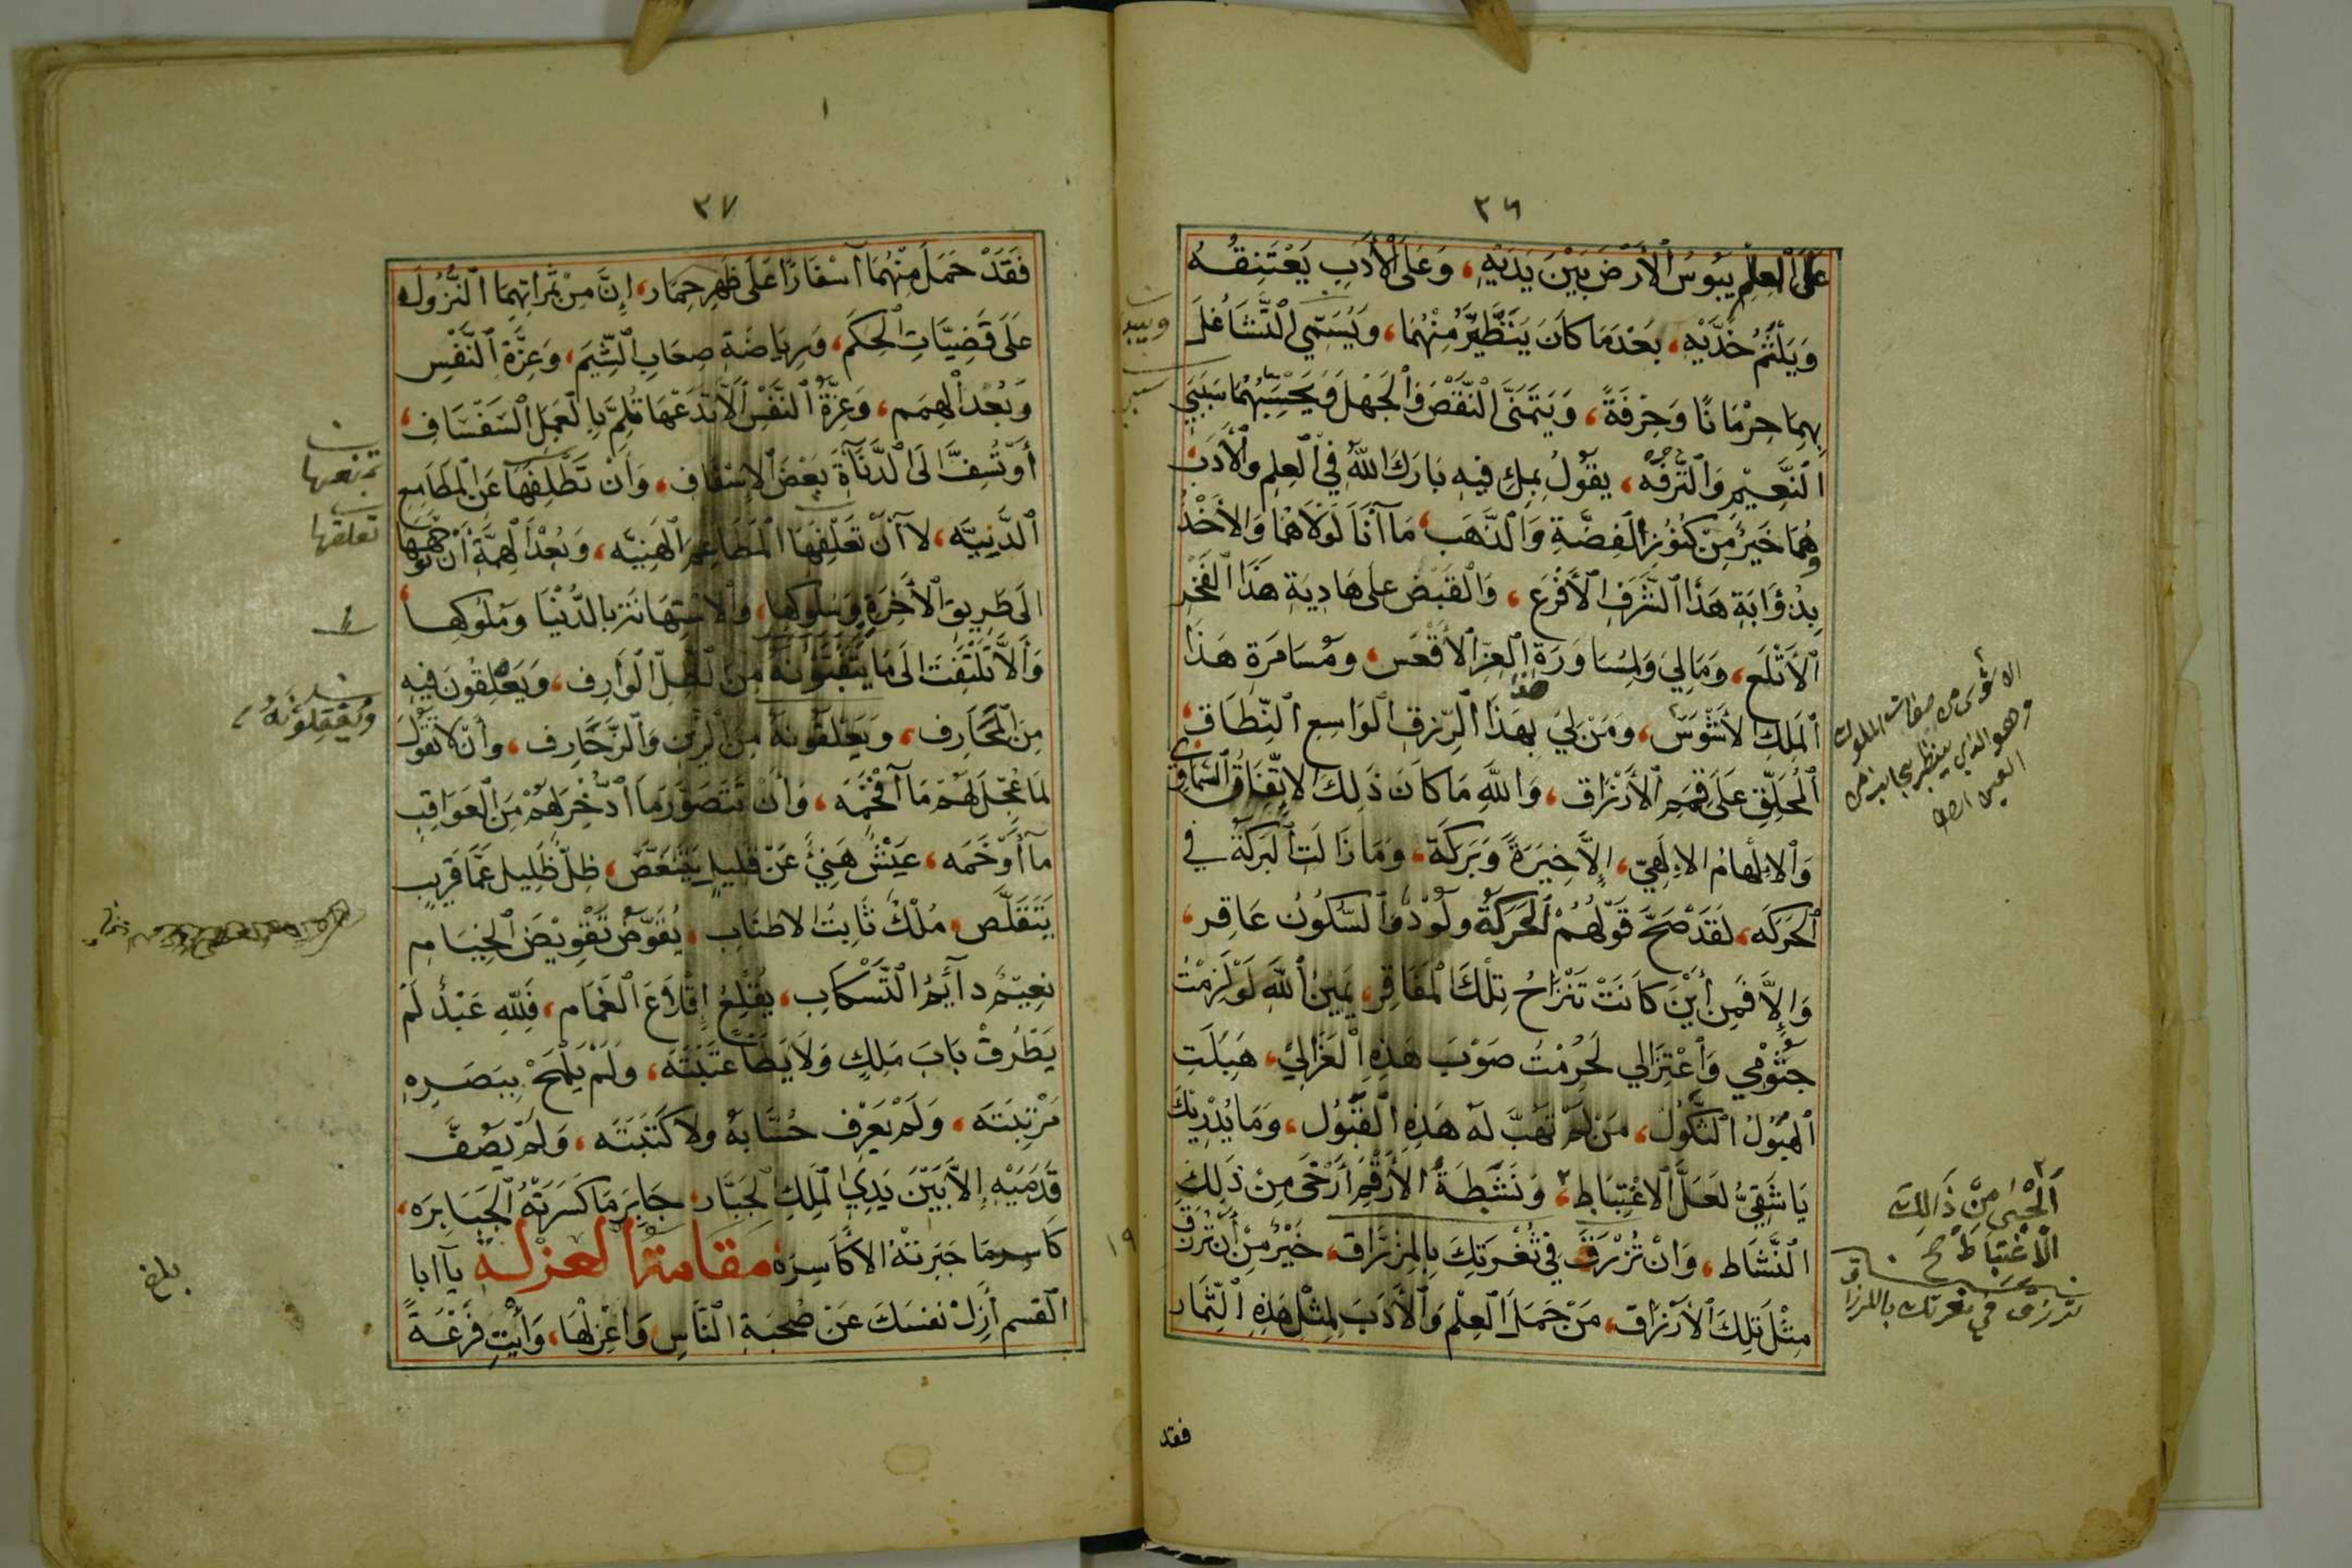 ٣٦
عَلَى الْعِلْمِ يَبُوسُ الْأَرْضَ بَيْنَ يَدَيْهِ، وَعَلَى الْأَدَبِ يَعْتَنِقُهُ
وَيَلْثَمُ خَدَّيْهِ، بَعْدَمَا كَانَ يَتَطَيَّرُ مِنْهُمَا، وَيُسَمِّي التَّشَاغُلَ
بِهِمَا حِرْمَانًا وَحِرْفَةً، وَيَتَمَنَّى النَّقْصَ وَالْجَهْلَ وَيَحْسَبُهُمَا سَبَبَيِ
النَّعِيمِ وَالتَّرَفُّهِ، يَقُولُ بِمِلْءِ فِيهِ بَارَكَ اللّٰهُ فِي الْعِلْمِ وَالْأَدَبِ
هُمَا خَيْرٌ مِنْ كُنُوزِ الْفِضَّةِ وَالذَّهَبِ، مَا أَنَا لَوْلَا هُمَا وَالْأَخْذُ
بِذُؤَابَةِ هَذَا الشَّرَفِ الْأَفْرَعِ، وَالْقَبْضُ عَلَى هَادِيَةِ هَذَا الْفَخْرِ
الْأَتْلَعِ، وَمَا لِي وَلِمُسَاوَرَةِ الْعِزِّ الْأَقْعَسِ، وَمُسَامَرَةِ هَذَا
الْمَلِكِ الْأَشْوَسِ، وَمَنْ لِي بِهَذَا الرِّزْقِ الْوَاسِعِ النِّطَاقِ،
الْمُحَلِّقِ عَلَى قِمَمِ الْأَرْزَاقِ، وَاللّٰهِ مَا كَانَ ذَلِكَ الْاِتِّفَاقُ السَّمَاوِيُّ
وَالْإِلْهَامُ الْإِلٰهِيُّ، إِلَّا خِيَرَةً وَبَرَكَةً، وَمَا زَالَتِ الْبَرَكَةُ فِي
الْحَرَكَةِ، لَقَدْ صَحَّ قَوْلُهُمْ الْحَرَكَةُ وَلُودٌ وَالسُّكُونُ عَاقِر،
وَإِلَّا فَمِنْ أَيْنَ كَانَتْ تَنْزَاحُ تِلْكَ الْمَفَاقِرُ، يَمِينُ اللّٰهِ لَوْ لَزِمْتُ
جُثُومِي وَاعْتِزَالِي لَحُرِمْتُ صَوْبَ هَذِهِ الْعَزَالِي، هَبِلَتِ
الْهَبُولُ الثَّكُولُ، مَنْ لَمْ تَهُبَّ لَهُ هَذِهِ الْقَبُولُ، وَمَا يُدْرِيكَ
يَا شَقِيُّ لَعَلَّ الْاِغْتِبَاطَ، وَنَشْطَةُ الْأَرْقَمِ أَرْخَى مِنْ ذَلِكَ
النَّشَاط، وَانْ تُزْرَقَ فِي ثُغْرَتِكَ بِالْمِزْرَاقِ، خَيْرٌ مِنْ أَنْ تُرْزَقَ
مِثْلَ تِلْكَ الْأَرْزَاقِ، مَنْ حَمَلَ الْعِلْمَ وَالْأَدَبَ لِمِثْلِ هَذِهِ الثِّمَار
فقد
الاشوس من صفات الملوك
وهو الذي ينظر بجانب من
العين
مِنْ ذَالِكَ
الْاِغْتِبَاط صح
تزرق في ثغرتك بالمزراق
٣٧
فَقَدْ حَمَلَ مِنْهُمَا أَسْفَارًا عَلَى ظَهْرِ حِمَار، إِنَّ مِنْ ثَمَرَاتِهِمَا النُّزُولَ
عَلَى قَضِيَّاتِ الْحِكَمِ، وَرِيَاضَةِ صِعَابِ الشِّيَمِ، وَعِزَّةِ النَّفْسِ
وَبُعْدَ الْهِمَمِ، وَعِزَّةُ النَّفْسِ الَّا تَدَعَهَا تُلِمُّ بِالْعَمَلِ السَّفْسَافِ،
أَوْ تُسِفُّ الَى الدَّنَآءَةِ بَعْضَ الْإِسْفَافِ، وَأَنْ تَظْلِفَهَا عَنِ الْمَطَامِعِ
الدَّنِيَّه، لَا أَنْ تَعْلِفَهَا الْمَطَاعِمَ الْهَنِيَّه، وَبُعْدُ الْهِمَّةِ أَنْ تُوَجِّهَهَا
الَى طَرِيقِ الْآخِرَةِ وَسُلُوكِهَا، وَالْاِسْتِهَانَةِ بِالدُّنْيَا وَمُلُوكِهَا،
وَأَلَّا تَلْتَفِتَ الَى مَا يَتَفَيَّئُونَهُ مِنَ الظِّلِّ الْوَارِفِ، وَيَعْلِقُونَ فِيهِ
مِنَ الْمَخَارِفِ، وَيَعْلَقُونَهُ مِنَ الزِّيَنِ وَالزَّخَارِفِ، وَأَنْ لَا تَقُولَ
لِمَا عُجِّلَ لَهُمْ مَا أَفْخَمَه، وَأَنْ تَتَصَوَّرَ مَا ادُّخِرَ لَهُمْ مِنَ الْعَوَاقِبِ
مَا أَوْخَمَه، عَيْشٌ هَنِيٌّ عَنْ قَلِيلٍ يَتَنَغَّصُ، ظِلٌّ ظَلِيل عَمَّا قَرِيبٍ
يَتَقَلَّص، مُلْكٌ ثَابِتُ الاطناب، يُقَوَّضُ تَقْوِيضَ الْخِيَامِ
نَعِيمٌ دَآئِمُ التَّسْكَابِ، يُقْلِعُ إِقْلَاعَ الْغَمَام، فَلِلّٰهِ عَبْدٌ لَمْ
يَطْرُقْ بَابَ مَلِكٍ وَلَا يَطَأ عَتَبَتَهُ، وَلَمْ يَلْمَحْ بِبَصَرِهِ
مَرْتَبَتَه، وَلَمْ يَعْرِف حُسَّابَهُ وَلَا كَتَبَتَه، وَلَمْ يَصُفَّ
قَدَمَيْهِ إِلَّا بَيْنَ يَدِي الْمَلِكِ الْجَبَّار، جَابِرِ مَا كَسَرَتْهُ الْجَبَابِرَه،
كَاسِرِ مَا جَبَرَتْهُ الْأَكَاسِرَهْ مَقَامَةُ الْعُزْلَهِ يَآ ابا
القسم أَزِلْ نفسَكَ عَنْ صُحْبَةِ النَّاسِ وَاعْزِلْهَا، وَائْتِ فَرْعَةً
تمنعها
تعلقها
بلغ
١٩